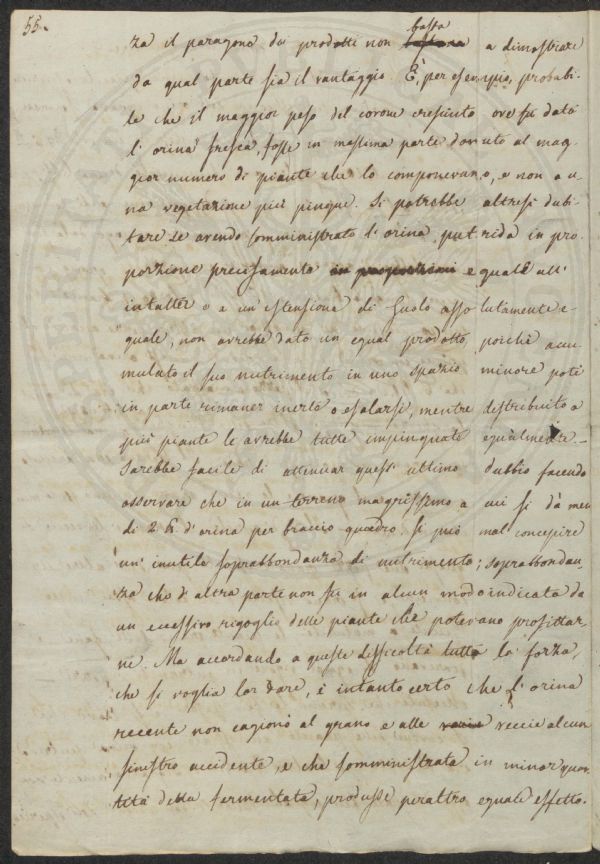 55.
basta
za il paragone dei prodotti non bastano a dimostrare
da qual parte sia il vantaggio. È, per esempio, probabi-
le che il maggior peso del covone cresciuto ove fu data
l'orina fresca, fosse in massima parte dovuto al mag-
gior numero di piante che lo componevano, e non a u-
na vegetazione più pingue. Si potrebbe altresì dubi-
tare se avendo somministrato l'orina putrida in pro-
porzione precisamente in proporzioni eguale all'
intatta o a un'estensione di suolo assolutamente e-
guale, non avrebbe dato un egual prodotto, poichè accu-
mulato il suo nutrimento in uno spazio minore potè
in parte rimaner inerte o esalarsi, mentre distribuito a
più piante le avrebbe tutte impinguate egualmente. -
Sarebbe facile di attenuar quest'ultimo dubbio facendo
osservare che in un terreno magrissimo a cui si dà men
di 2 d'orina per braccio quadro si può mal concepire
un'inutile soprabbondanza di nutrimento; soprabbondan-
za che d'altra parte non fu in alcun modo indicata da
un eccessivo rigoglio delle piante che potevano profittar-
ne. Ma accordando a queste difficoltà tutta la forza,
che si voglia lor dare, è intanto certo che l'orina
recente non cagionò al grano e alle veccie alcun
sinistro accidente, e che somministrata in minor quan-
tità della fermentata, produsse peraltro eguale effetto.